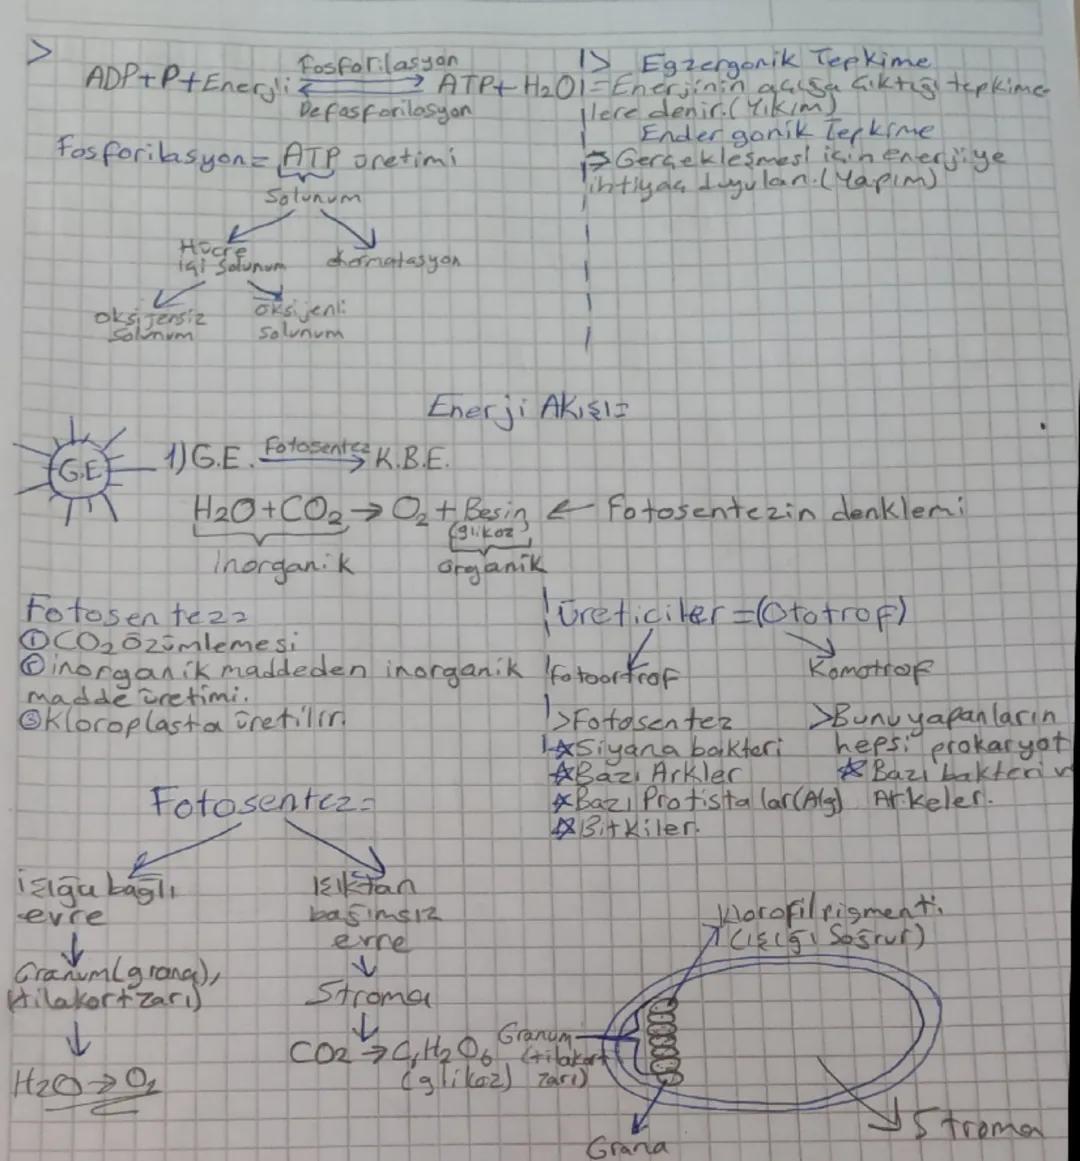 >
Fosforilasyon
ADP+P+Enerji ⇄ ATP+ H2O
Defosforilasyon
Fosforilasyon= ATP üretimi
Solunum
Hücre
içi Solunum
oksijensiz
Solunum
oksijenli
Solunum
1> Egzergonik Tepkime
=Enerjinin açığa çıktığı tepkime
lere denir.(Yıkım)
Endergonik Tepkime
=> Gerçekleşmesi için enerjiye
ihtiyaç duyulan.(Yapım)
Enerji Akışı=
G.E
1) G.E. Fotosentez → K.B.E.
H2O+CO2 → O2 + Besin ← Fotosentezin denklemi
(glikoz)
inorganik organik
Fotosentez=
① CO2 özümlemesi
② inorganik maddeden inorganik
madde üretimi.
③ Kloroplasta üretilir.
Üreticiler =(Ototrof)
Fotoortrof
>Fotosentez
☆Siyana bakteri
☆Bazı Arkler
☆Bazı Protistalar(Alg)
☆Bitkiler.
Komotrof
>Bunu yapanların
hepsi prokaryot
☆Bazı bakteri v
Arkeler.
Fotosentez=
ışığa bağlı
evre
↓
Granum(grana),
(tilakort zarı)
↓
H2O → O2
Işıktan
bağımsız
evre
↓
Stroma
↓
CO2 → C6H12O6
(glikoz)
klorofil pigmenti
(ışığı Soğrur)
Granum
(tilakort
zarı)
Grana
Stroma